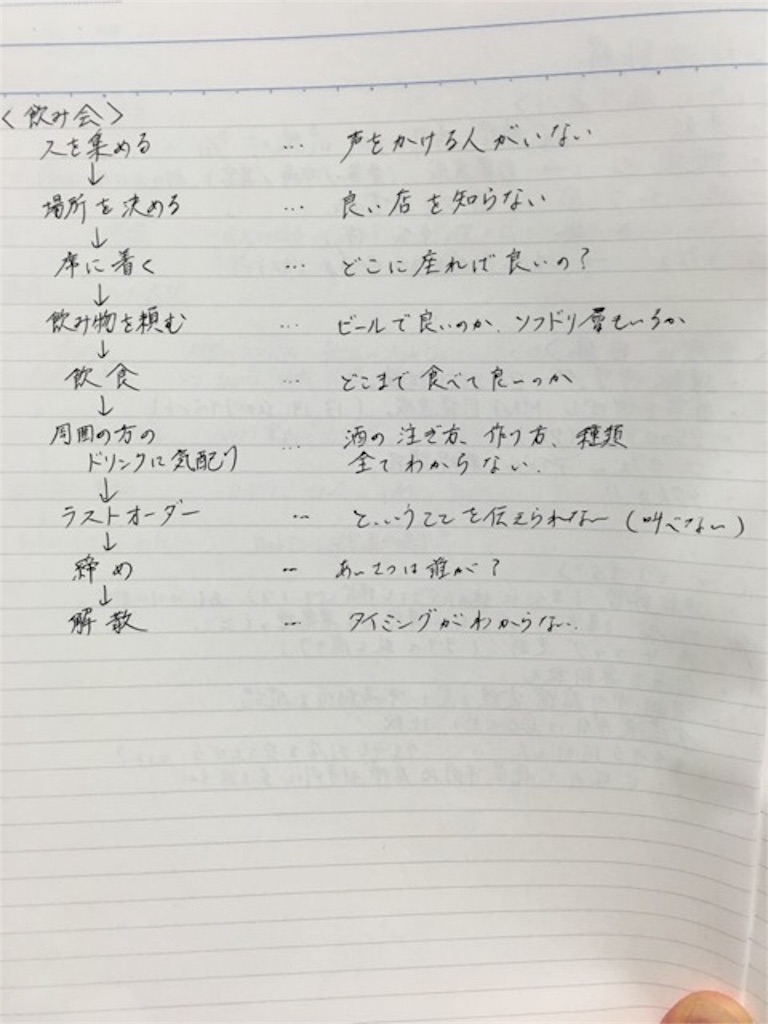 <飲み会>
人を集める … 声をかける人がいない
↓
場所を決める … 良い店を知らない
↓
席に着く … どこに座れば良いの?
↓
飲み物を頼む … ビールで良いのか、ソフドリ層もいるか
↓
飲食 … どこまで食べて良いのか
↓
周囲の方の … 酒の注ぎ方、作り方、種類
ドリンクに気配り 全てわからない.
↓
ラストオーダー … ということを伝えられない (叫べない)
↓
締め … あいさつは誰が?
↓
解散 … タイミングがわからない.